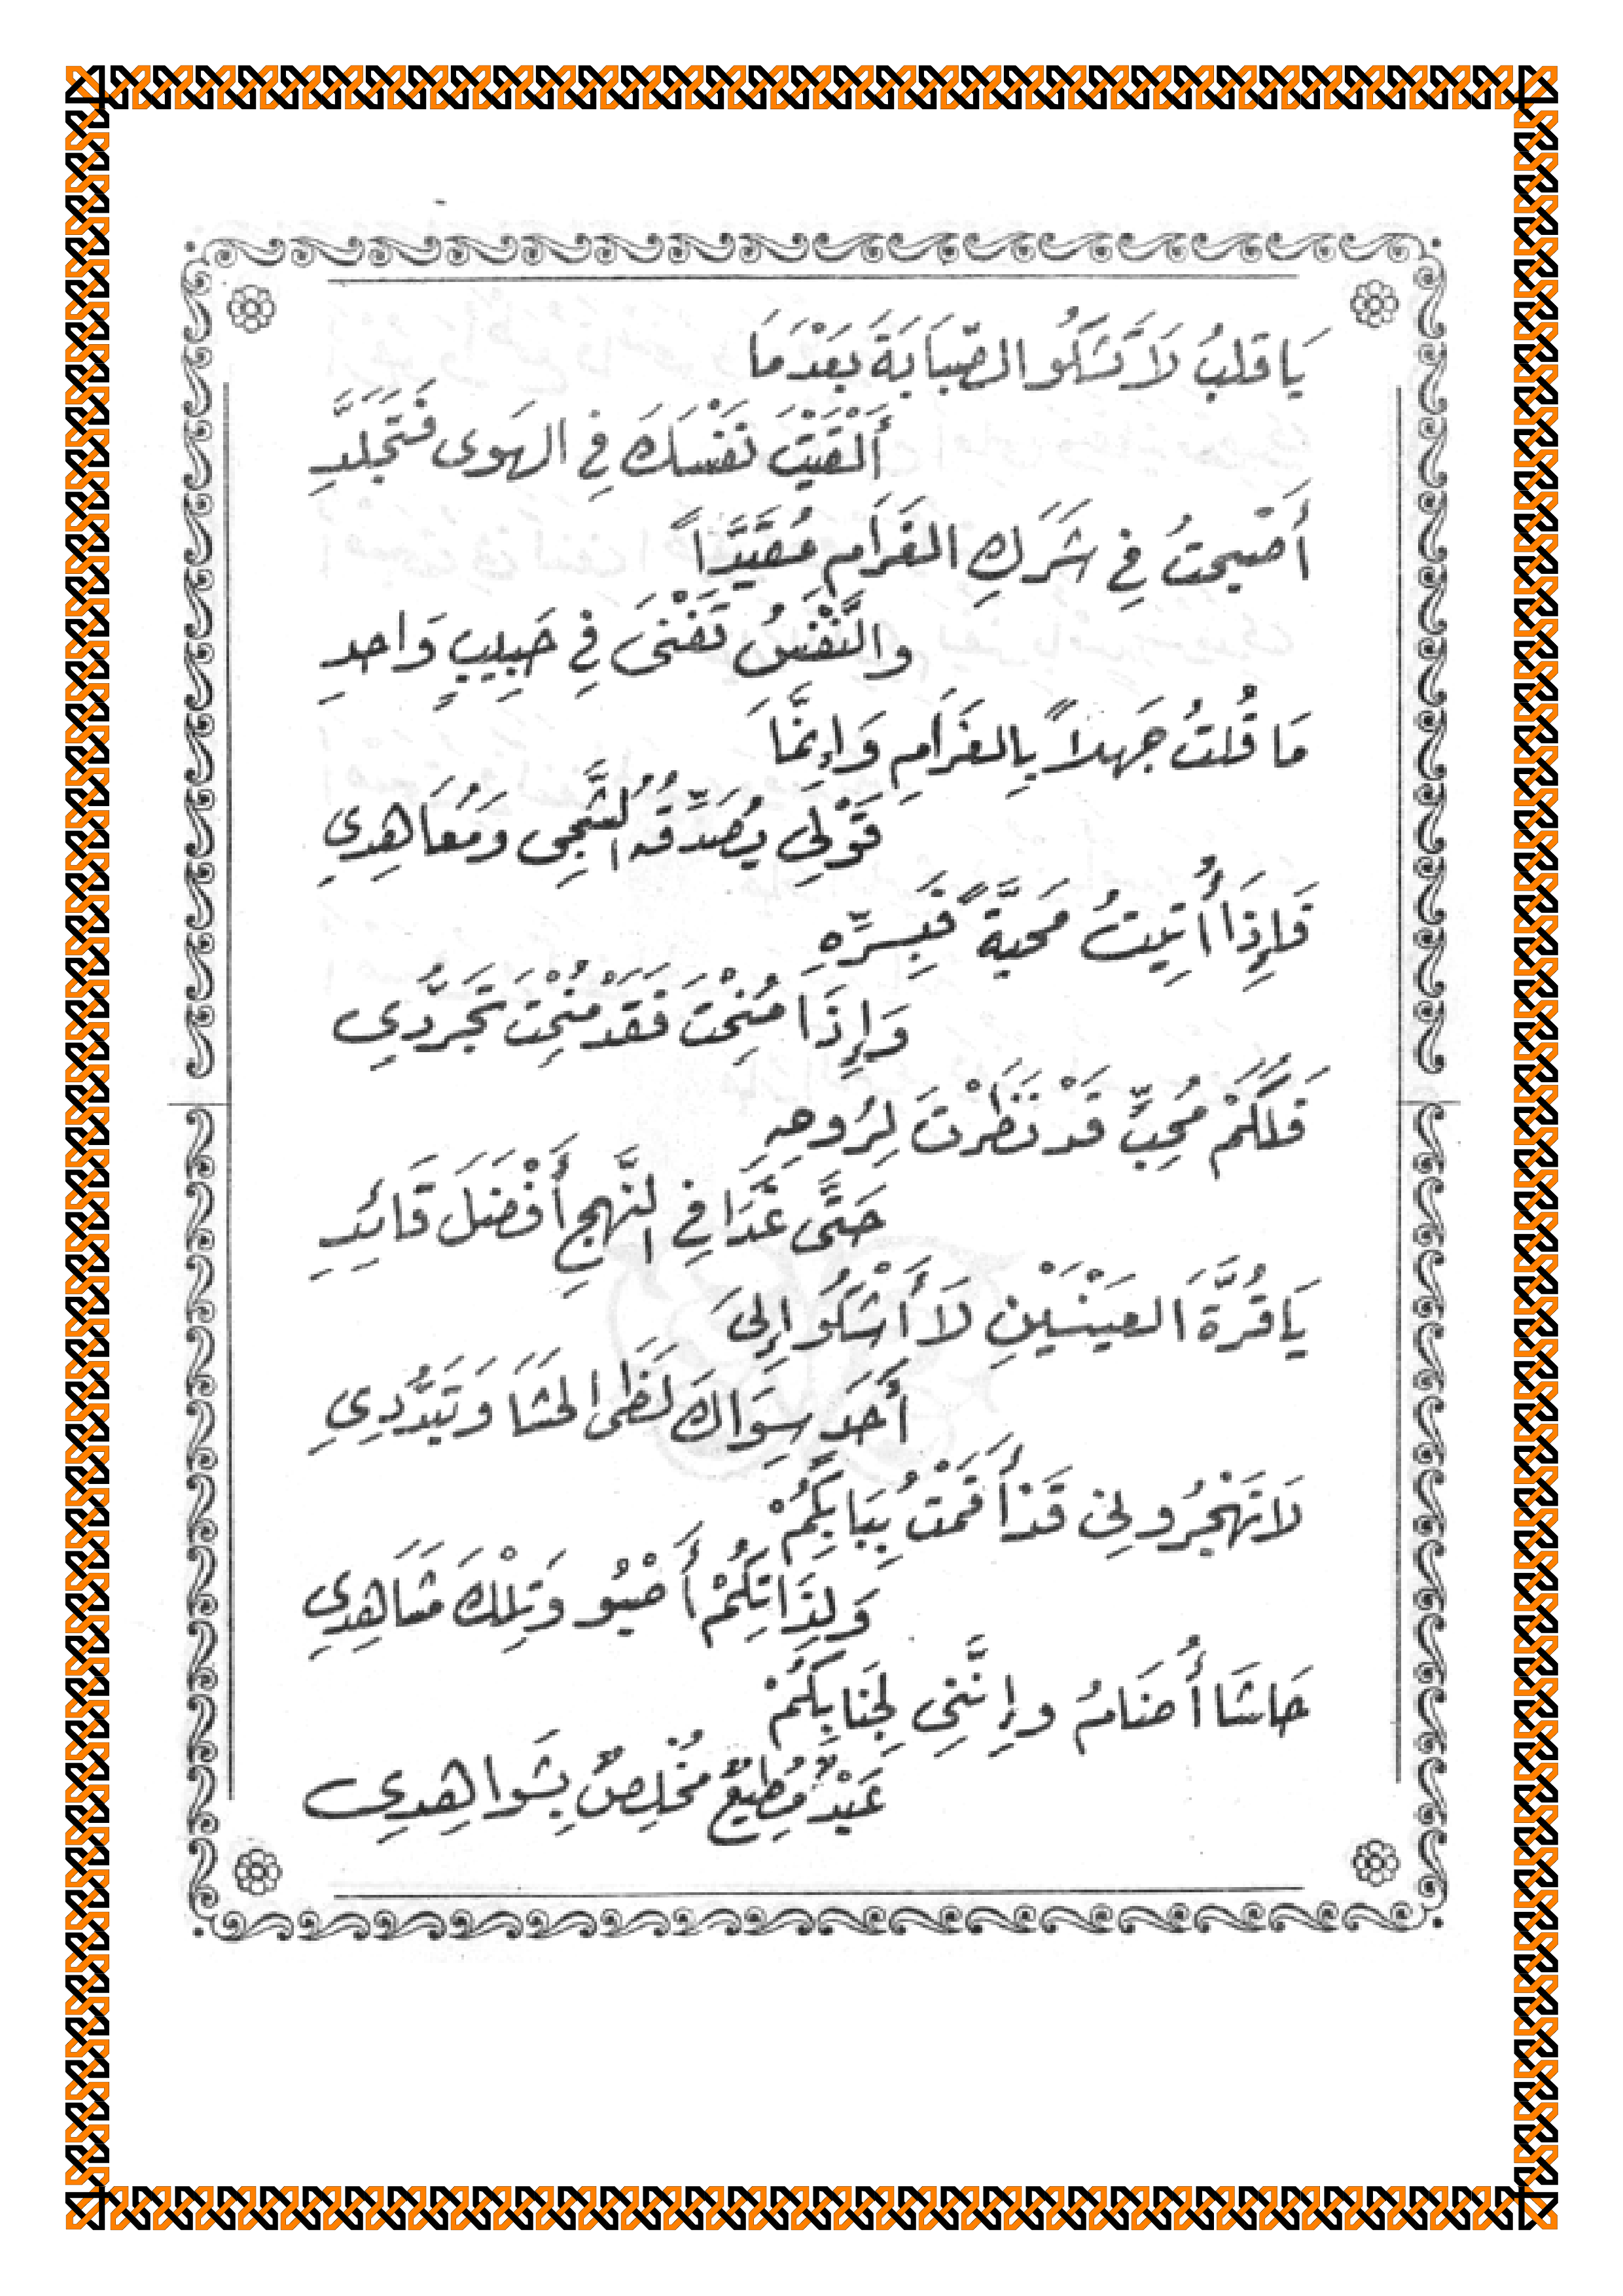 يَا قَلبُ لَا تَشكُو الصَّبَابَةَ بَعْدَمَا
أَلْقَيْتَ نَفْسَكَ فِي الهَوى فَتَجَلَّدِ
أَصْبَحتُ فِي شَرَكِ الغَرَامِ مُقَيَّدًا
والنَّفْسُ تَفْنَى فِي حَبِيبٍ وَاحدِ
مَا قُلتُ جَهلاً بِالغَرَامِ وَإِنَّمَا
قَوْلِي يُصَدِّقُهُ الشَّجِي وَمُعَاهِدِي
فَإِذَا أُتِيتُ مَحبَّةً فَبِسِرِّهِ
وَإِذَا مُنِحْتَ فَقَدْ مُنِحْتَ تَجَرُّدِي
فَلَكَمْ مُحِبٍّ قَدْ نَظَرْتَ لِرُوحِهِ
حَتَّى غَدَا فِي النَّهجِ أَفْضَلَ قَائِدِ
يَا قُرَّةَ العَيْنَيْنِ لَا أَشْكُو إِلَى
أَحَدٍ سِوَاكَ لَظَى الحَشَا وَتَبَدُّدِي
لَا تَهْجُرُونِي قَدْ أَقَمْتُ بِبَابِكُمْ
وَلِذَاتِكُمْ أَصْبُو وَتِلْكَ مَشَاهِدِي
حَاشَا أُضَامُ وإِنَّنِي لِجَنَابِكُمْ
عَبْدٌ مُطِيعٌ مُخْلِصٌ بِشَواهِدِي